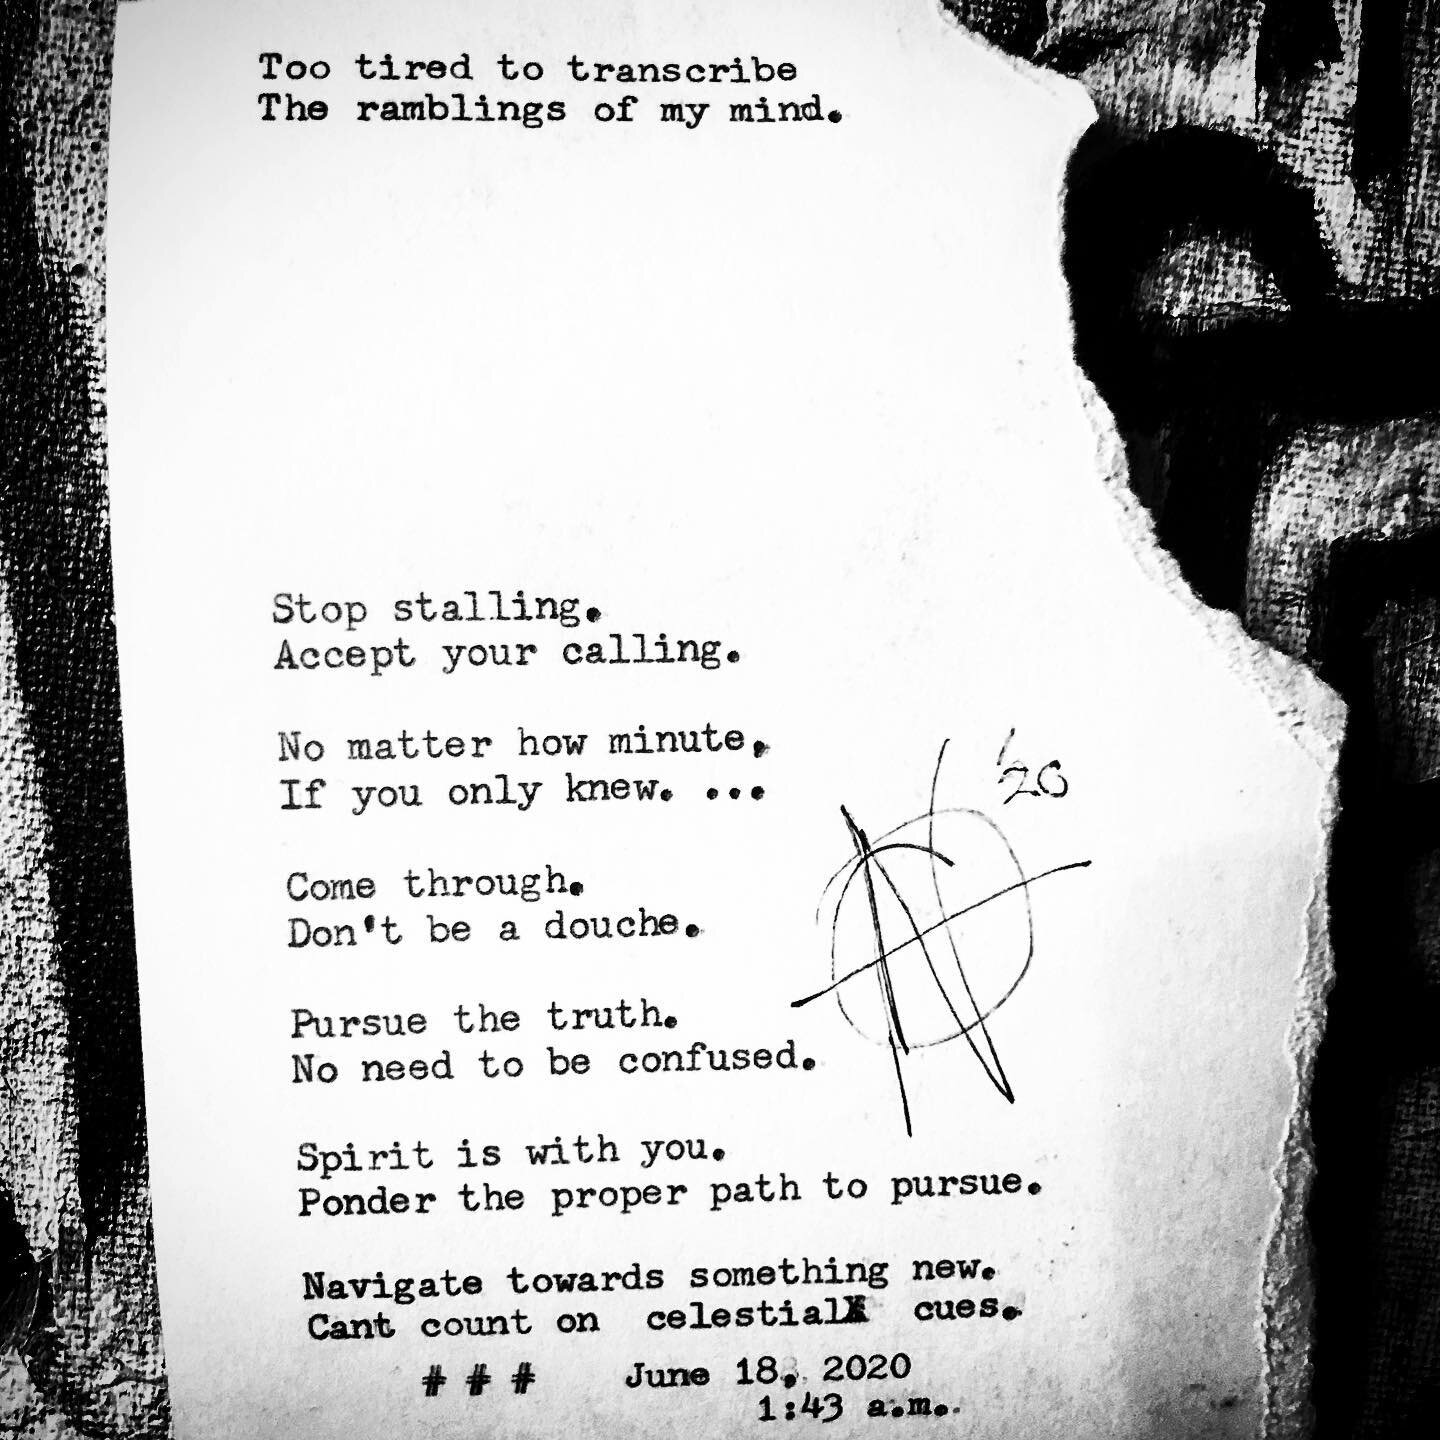 Too tired to transcribe
The ramblings of my mind.
Stop stalling.
Accept your calling.
No matter how minute,
If you only knew. ...
Come through.
Don't be a douche.
'20
Pursue the truth.
No need to be confused.
Spirit is with you.
Ponder the proper path to pursue.
Navigate towards something new.
Cant count on celestial cues.
# # # June 18, 2020
1:43 a.m..